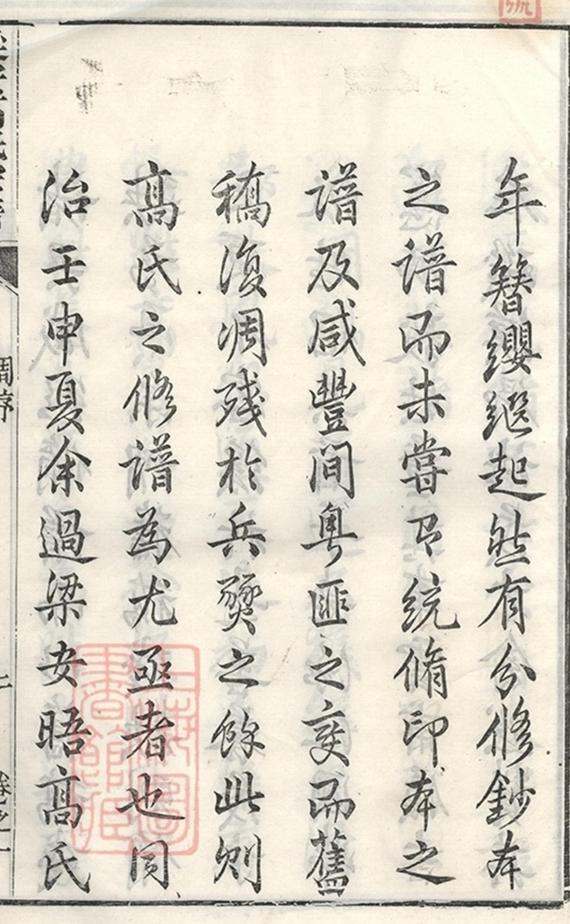 年簪纓繼起然有分修鈔本
之譜而未嘗㠯統脩印本之
譜及咸豐間粵匪之變而舊
稿復凋殘於兵燹之餘此則
高氏之修譜為尤亟者也同
治壬申夏余過梁安晤高氏
周序
卷之一
上海圖書館藏